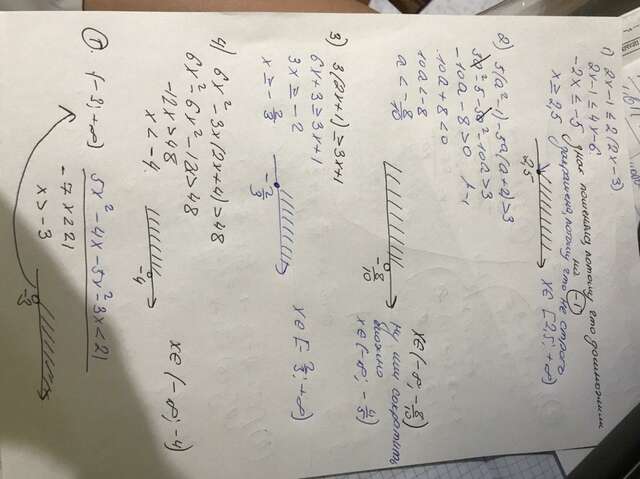 1) 2x-1 ≤ 2(2x-3)
2x-1 ≤ 4x-6
-2x ≤ -5
x ≥ 2,5
знак поменяла, потому что домножили на (-1)
закрашена, потому что не строго
2,5
x∈[2,5;+∞)
2) 5(a²-1)-5a(a+2)>3
5a²-5-5a²-10a>3
-10a-8>0 /·-1
10a+8<0
10a<-8
a<-8/10
-8/10
x∈(-∞;-8/10)
ну или сократить можно
x∈(-∞;-4/5)
3) 3(2x+1)≥3x+1
6x+3≥3x+1
3x≥-2
x≥-2/3
-2/3
x∈[-2/3;+∞)
4) 6x²-3x(2x+4)>48
6x²-6x²-12>48
-12x>48
x<-4
-4
x∈(-∞;-4)
5x²-4x-5x²-3x<21
-7x<21
x>-3
-3
(-3;+∞)